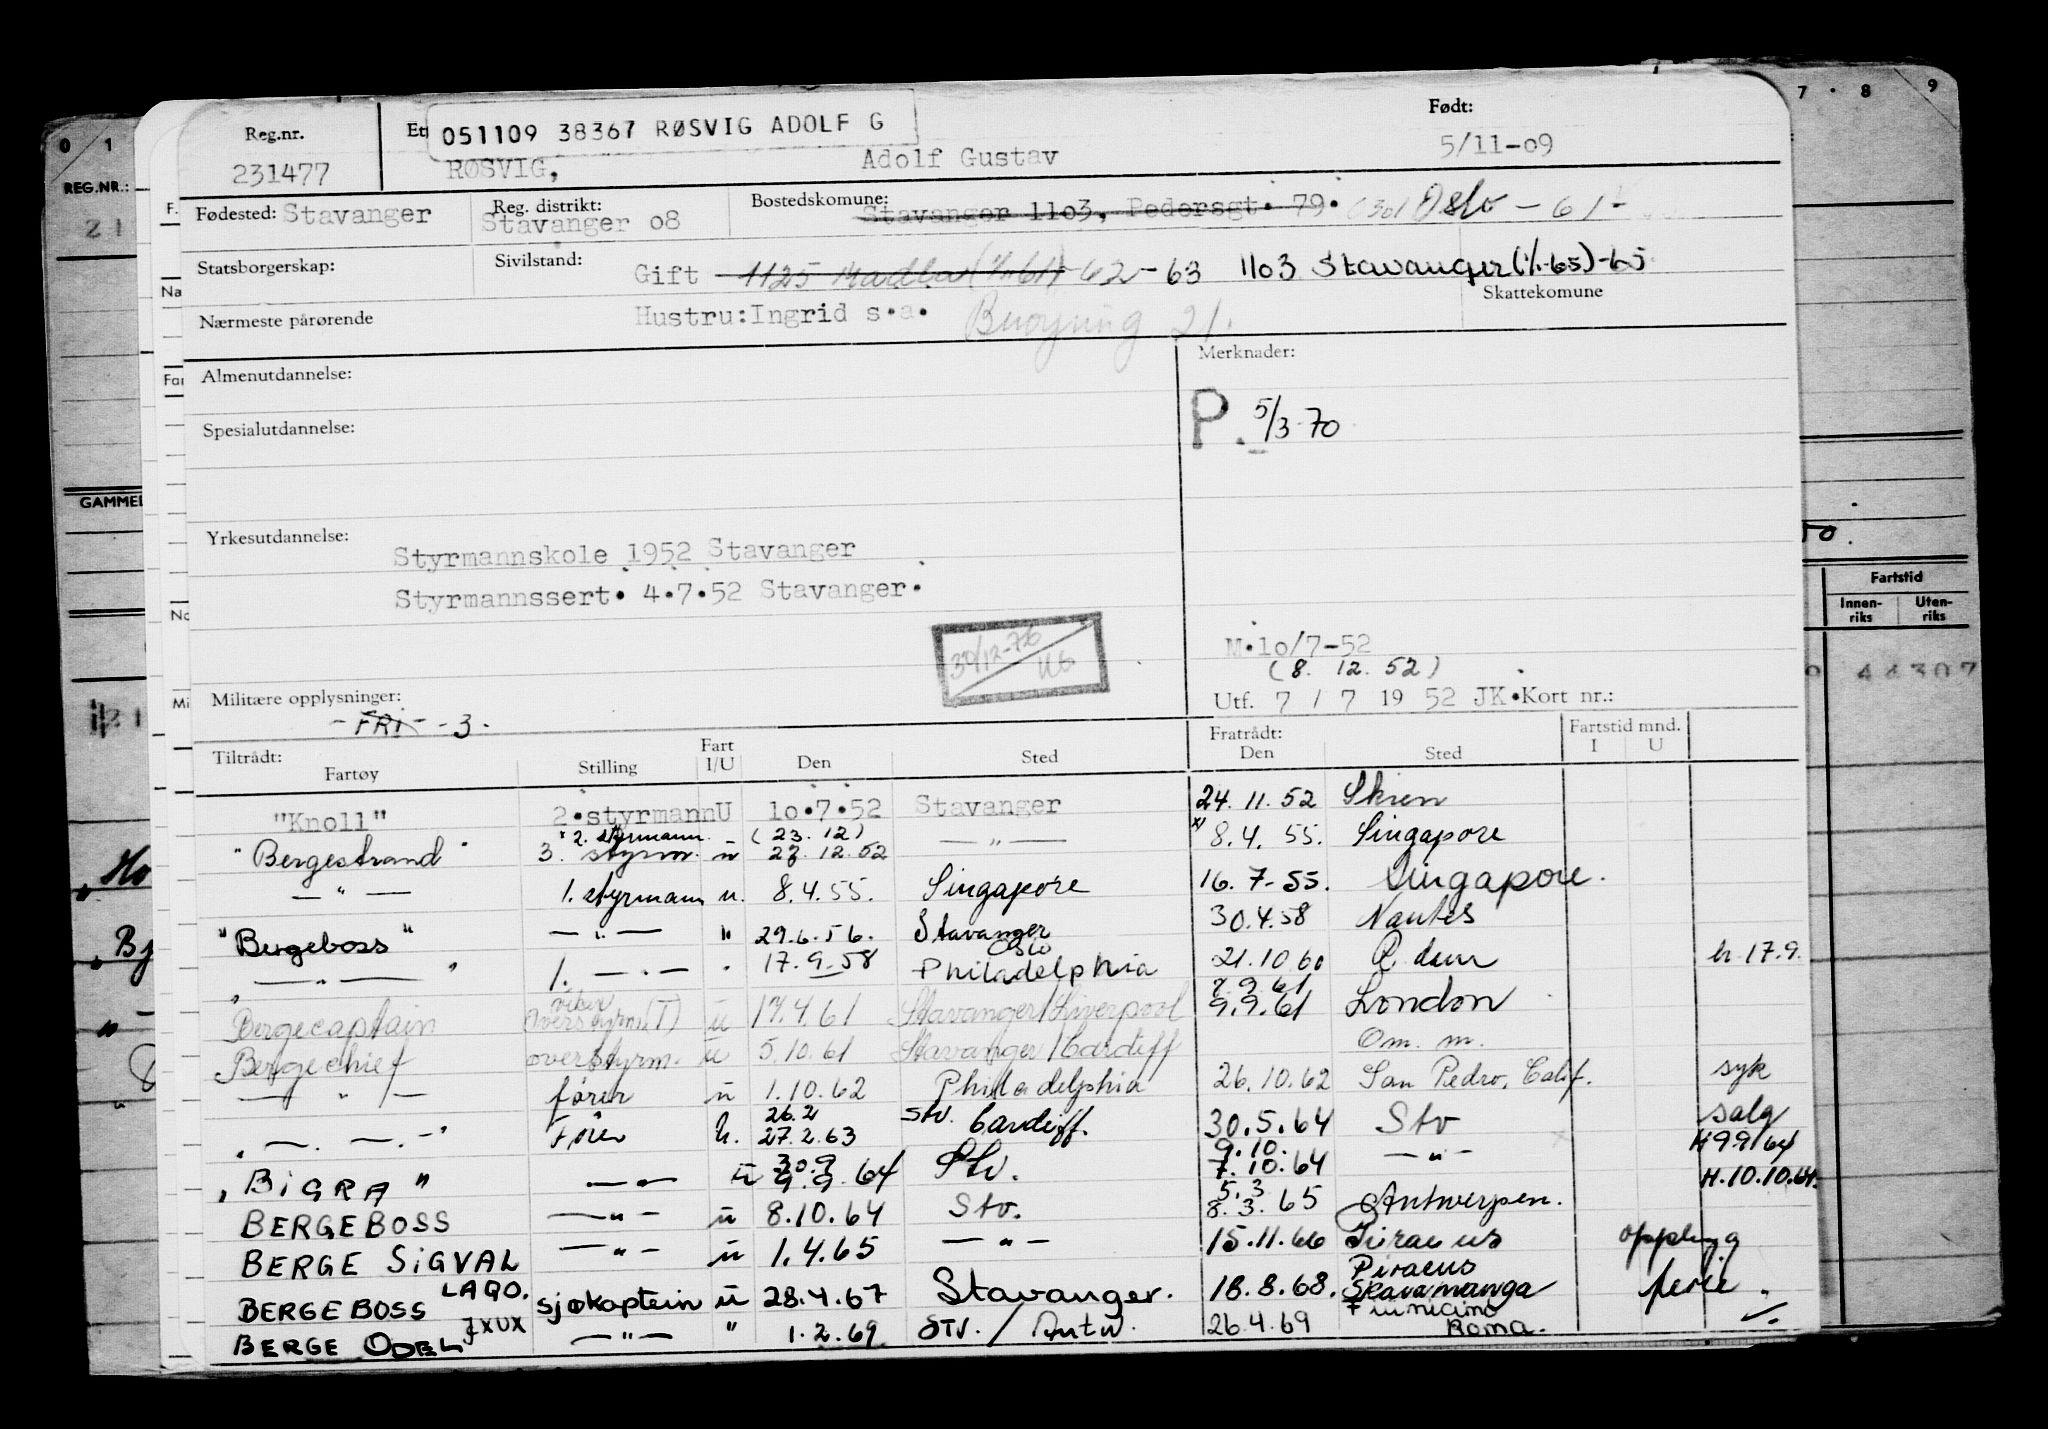 0 1
7 · 8 9
REG.NR.:
21
GAMMEL
Fartstid
Innen-riks Uten-riks
44307
Reg.nr. Et 051109 38367 RØSVIG ADOLF G Født:
231477 RØSVIG, Adolf Gustav 5/11-09
Fødested: Stavanger Reg. distrikt: Stavanger o8 Bostedskomune: Stavanger 11o3, Pedersgt. 79. 0301 Oslo - 61-
Statsborgerskap: Sivilstand: Gift 1125 Madla 62-63 11o3 Stavanger (1/1-65)-65
Skattekomune
Nærmeste pårørende Hustru: Ingrid s.a. Buøyring 21.
Almenutdannelse: Merknader:
P. 5/3-70
Spesialutdannelse:
Yrkesutdannelse:
Styrmannskole 1952 Stavanger
Styrmannssert. 4.7.52 Stavanger.
30/12-76
M.1o/7-52
(8. 12. 52)
Militære opplysninger: Utf. 7 / 7 19 52 JK.Kort nr.:
-FRI- -3-
Tiltrådt: Fartøy Stilling Fart I/U Den Sted Fratrådt: Den Sted Fartstid mnd. I U
"Knoll" 2.styrmann U 1o.7.52 Stavanger 24.11.52 Skien
2. styrmann (23.12)
"Bergestrand" 3. styrm. u 27.12.52 — " — x) 8.4.55. Singapore
— " — 1. styrmann u. 8.4.55. Singapore 16.7-55. Singapore.
"Bergeboss" — " — " 29.6.56. Stavanger 30.4.58 Nantes
Oslo
" — " 1. — " — " 17.9.58 Philadelphia 21.10.60 R.dam h 17.9.
vikar 8.9.61
Bergecaptain overstyrm (T) u 17.4.61 Stavanger/Liverpool 9.9.61 London
Bergechief overstyrm. u 5.10.61 Stavanger/Cardiff Om. m.
— " — fører u 1.10.62 Philadelphia 26.10.62 San Pedro, Calif. syk
26.2
" — . — " Fører u. 27.2.63 Stv. Cardiff. 30.5.64 Stv salg
30.9 9.10. H 9.9.64
"BIGRA" — " — u 9.9.64 Stv. 7.10.64 — " — H.10.10.64.
5.3
BERGEBOSS — " — u 8.10.64 Stv. 8.3.65 Antwerpen.
BERGE SIGVAL — " — u 1.4.65 — " — 15.11.66 Piraeus opplegg
LAQO. Piraeus
BERGEBOSS sjøkaptein u 28.4.67 Stavanger. 18.8.68. Skaramanga ferie
JXUX Fiumicino
BERGE ODEL — " — " 1.2.69 STV. / Antw. 26.4.69 Roma.